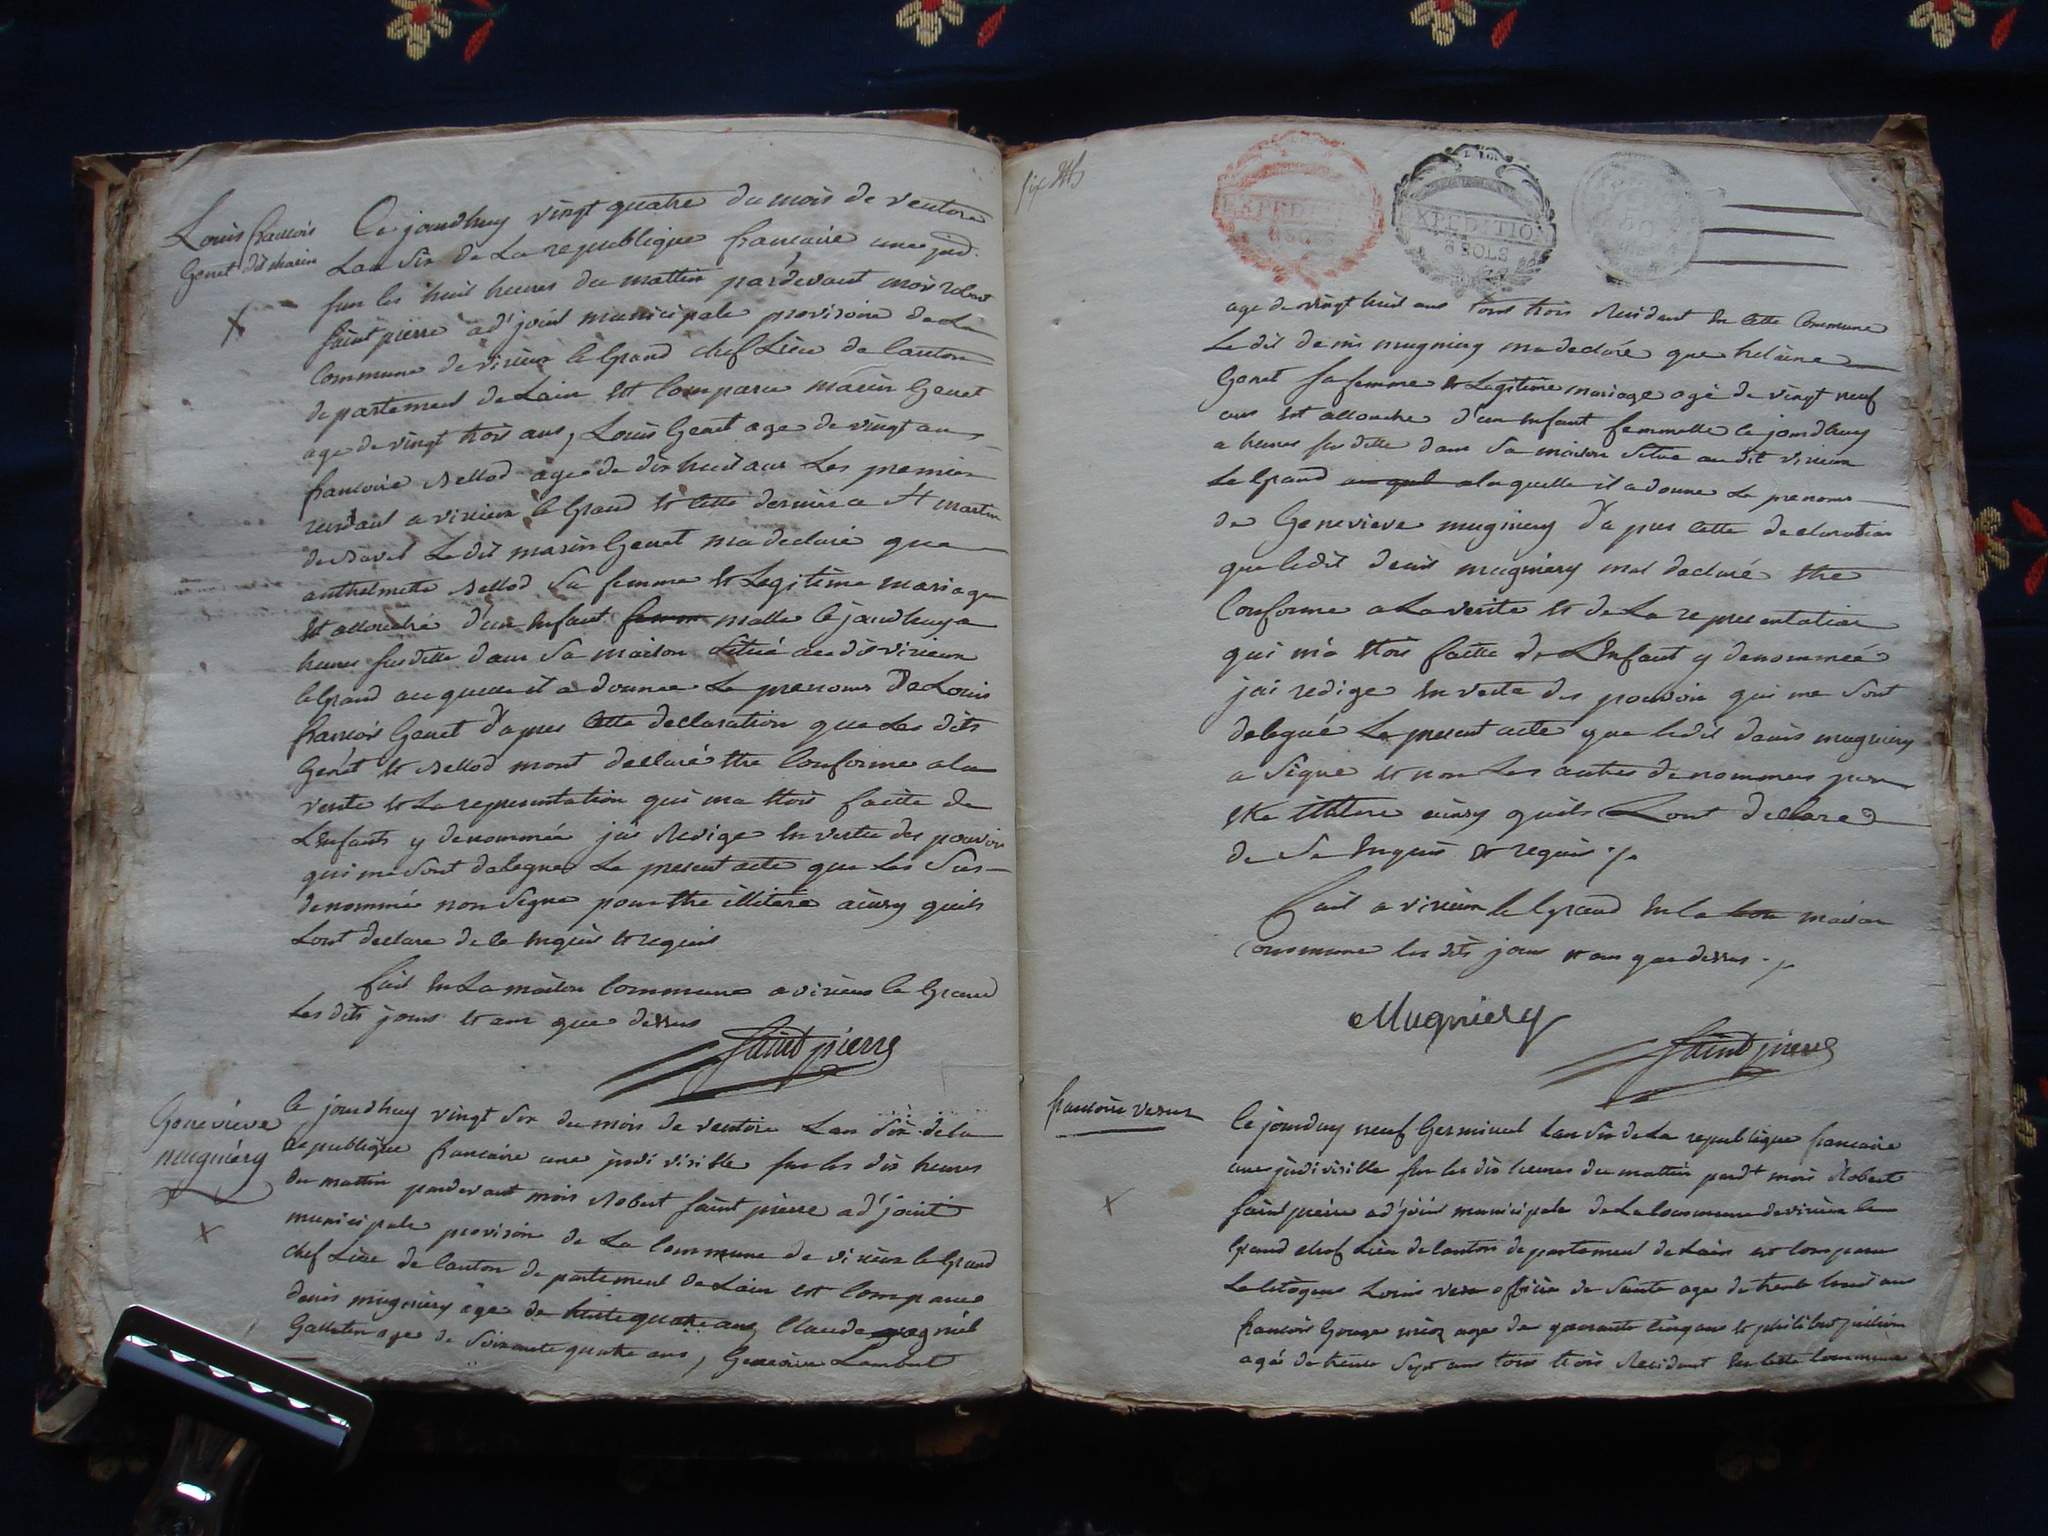 Louis francois
Genet dit marin
Ce jourdhuy vingt quatre du mois de ventose
Lan six de La republique francaise une jnd.
sur les huit heures du mattin pardevant mois robert
saint pierre ad'joint municipale provisoire de La
Commune de virieu le Grand chef Lieu de Canton
departement de Lain est Comparu marin Genet
age de vingt trois ans, Louis Genet age de vingt ans
francoise Bellod agee de dix huit ans Les premier
residant a virieu le Grand et cette derniere a St martin
de Bavel Le dit marin Genet ma declaré que
anthelmette Bellod sa femme et Legitime mariage
est allouché d'un enfant malle ce jourdhuy a
heures susditte dans sa maison situé au dit virieu
le Grand au quelle il a donnee Le prenoms De Louis
francois Genet d'apres cette declaration que Les dits
Genet et Bellod mont declaré etre Conforme a la
verite et La representation qui ma ettois faitte de
L'enfants y denommée jai Redige en vertu des pouvoir
qui me sont delegues Le present acte que Les sus-
denommé non signe pour etre illitere ainsy quils
Lont declare de ce enquis et requis
fait en La maison Commune a virieu le Grand
Les dits jours et an que dessus
Saint pierre
Genevieve
mugniéry
Ce jourdhuy vingt six du mois de ventose Lan six de la
republique francaise une jndi visible sur les dix heures
du mattin pardevant mois Robert saint pierre ad'joint
municipale provisoir de La Commune de virieu le Grand
chef Lieu de Canton departement de Lain est Comparue
denis mugniery age de trente quatre ans, Claude
age de soixante quatre ans, Genevieve Lambert
EXPEDITION
8 SOLS
EXPEDITION
8 SOLS
50
age de vingt huit ans tous trois Resident en cette Commune
Le dit denis mugniery ma declaré que helaine
Genet sa femme et Legitime mariage age de vingt neuf
ans est allouche d'un enfant femmelle ce jourdhuy
a heures susditte dans sa maison situe audit virieu
Le Grand au quel a laquelle il a donne Le prenoms
de Genevieve mugniery d'apres cette declaration
que ledit denis mugniery mat declaré etre
Conforme a La verite et de La representation
qui m'a ettois faitte de L'enfant y denommeé
jai redige en vertu des pouvoir qui me sont
delegué Le present acte que ledit denis mugniery
a signe et non Les autres denommer pour
etre illitere ainsy quils Lont declare
de se enquis et requis ./.
fait a virieu le Grand en la maison
Commune les dits jour et an que dessus ./.
Mugniery
Saint pierre
francoise
Ce jourduy neuf Germinal Lan six de La republique francaise
une jndi visible sur les dix heures du mattin pardt mois Robert
saint pierre ad'joint municipale de La Commune de virieu le
Grand chef Lieu de Canton departement de Lain est Compare
Le citoyens Louis officie de sante age de trente huit ans
francois age de quarante cinq ans et philibert
agé de trente sept ans tous trois Resident en cette Commune